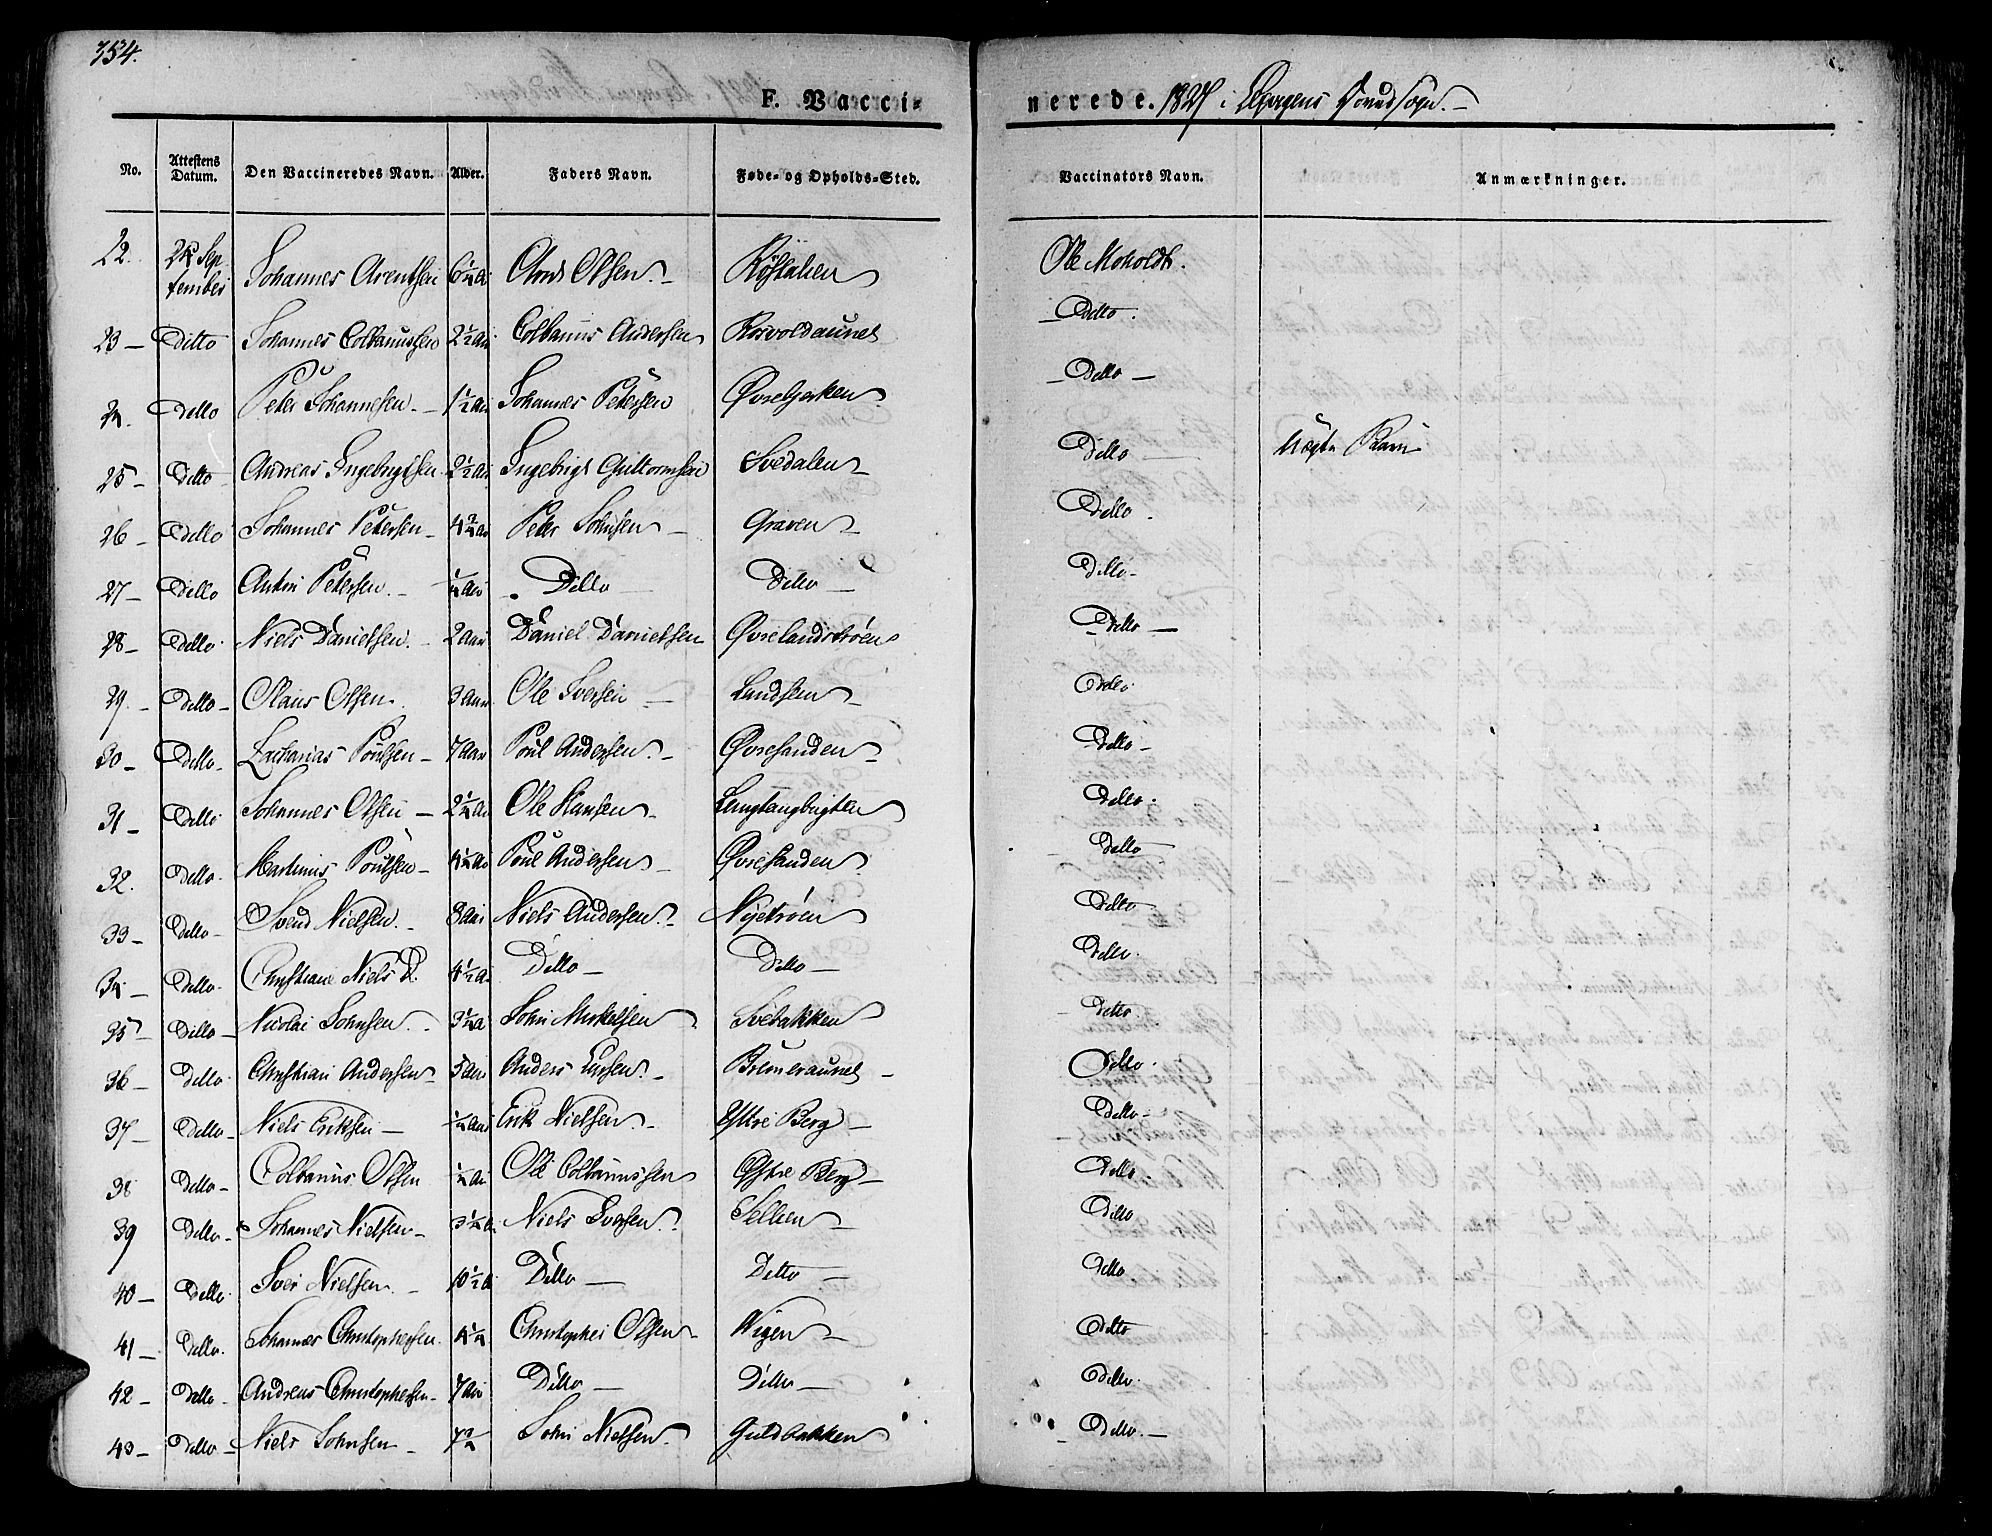 354.
F. Vacci-
nerede. 1827 i
No. Attestens Datum. Den Vaccineredes Navn. Alder. Faders Navn. Føde- og Opholds-Sted. Vaccinators Navn. Anmærkninger.
22. 24 September Johannes Arentsen 6 1/4 Olsen. Ole Moholdt.
23 – Ditto Johannes Colbanussen 2 1/2 Colbanus Andersen Rosvoldaunet Ditto.
24. Ditto Peter Johannesen. – 1 1/2 Johannes Petersen Ditto –
25 – Ditto Andreas Engebrigtsen 2 1/2 Engebrigt Guttormsen Svedalen Ditto
26 – Ditto Johannes Petersen – 4 3/4 Peter Johnsen – Graven Ditto.
27 – Ditto Petersen. – 1/4 Ditto Ditto – Ditto –
28 – Ditto Niels Danielsen. 2 Aar Daniel Danielsen Øvrelandstrøen Ditto –
29. – Ditto – Olaus Olsen. 3 Aar Ole Iversen – Ditto
30 – Ditto – Zacharias Poulsen – 7 Aar Poul Andersen. – Øvresanden – Ditto –
31 – Ditto Johannes Olsen – 2 1/4 Ole Hansen – Ditto.
32. Ditto. Martinus Poulsen – 4 1/4 Poul Andersen – Øvresanden Ditto
33 – Ditto – Svend Nielsen. – 8 Niels Andersen. – Nyetrøen Ditto
34 – Ditto. Christiane Niels D. 4 1/2 Ditto – Ditto – Ditto.
35 – Ditto – Nicolai Johnsen. 3 1/4 John Mikkelsen Svebakken Ditto.
36 – Ditto. Christian Andersen – 5 Anders Larsen. – – Ditto.
37 – Ditto – Niels Eriksen – 1/4 Erik Nielsen. – Østre Berg – Ditto –
38 Ditto – Colbanus Olsen 1/4 Ole Colbanussen Østre Berg – Ditto.
39 Ditto – Johannes Nielsen – 3 1/4 Niels Iversen. Ditto
40 – Ditto. Iver Nielsen. – 10 1/2 Ditto – Ditto – Ditto.
41 – Ditto. Johannes Christophersen. 4 1/4 Christopher Olsen – – Ditto
42 – Ditto – Andreas Christophersen – 7 Ditto – Ditto – Ditto.
43 – Ditto – Niels Johnsen – 7 3/4 John Nielsen. Guldbakken Ditto. –